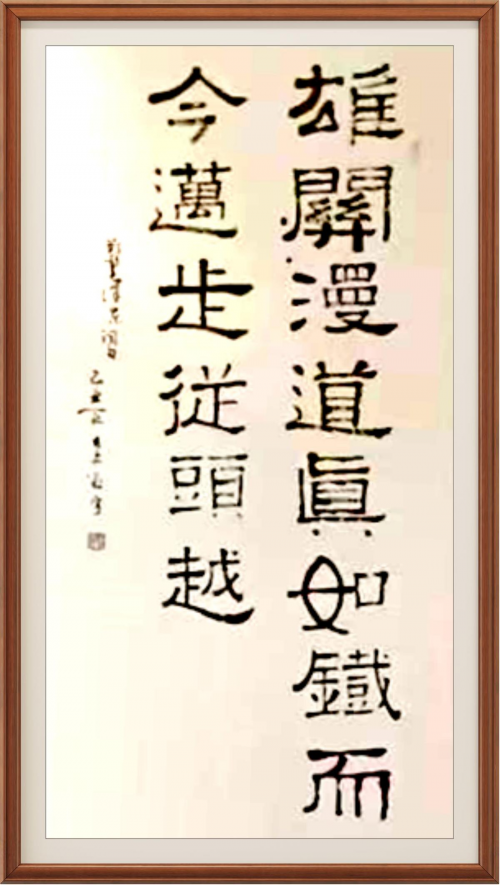 雄關漫道真如鐵而
今邁步從頭越